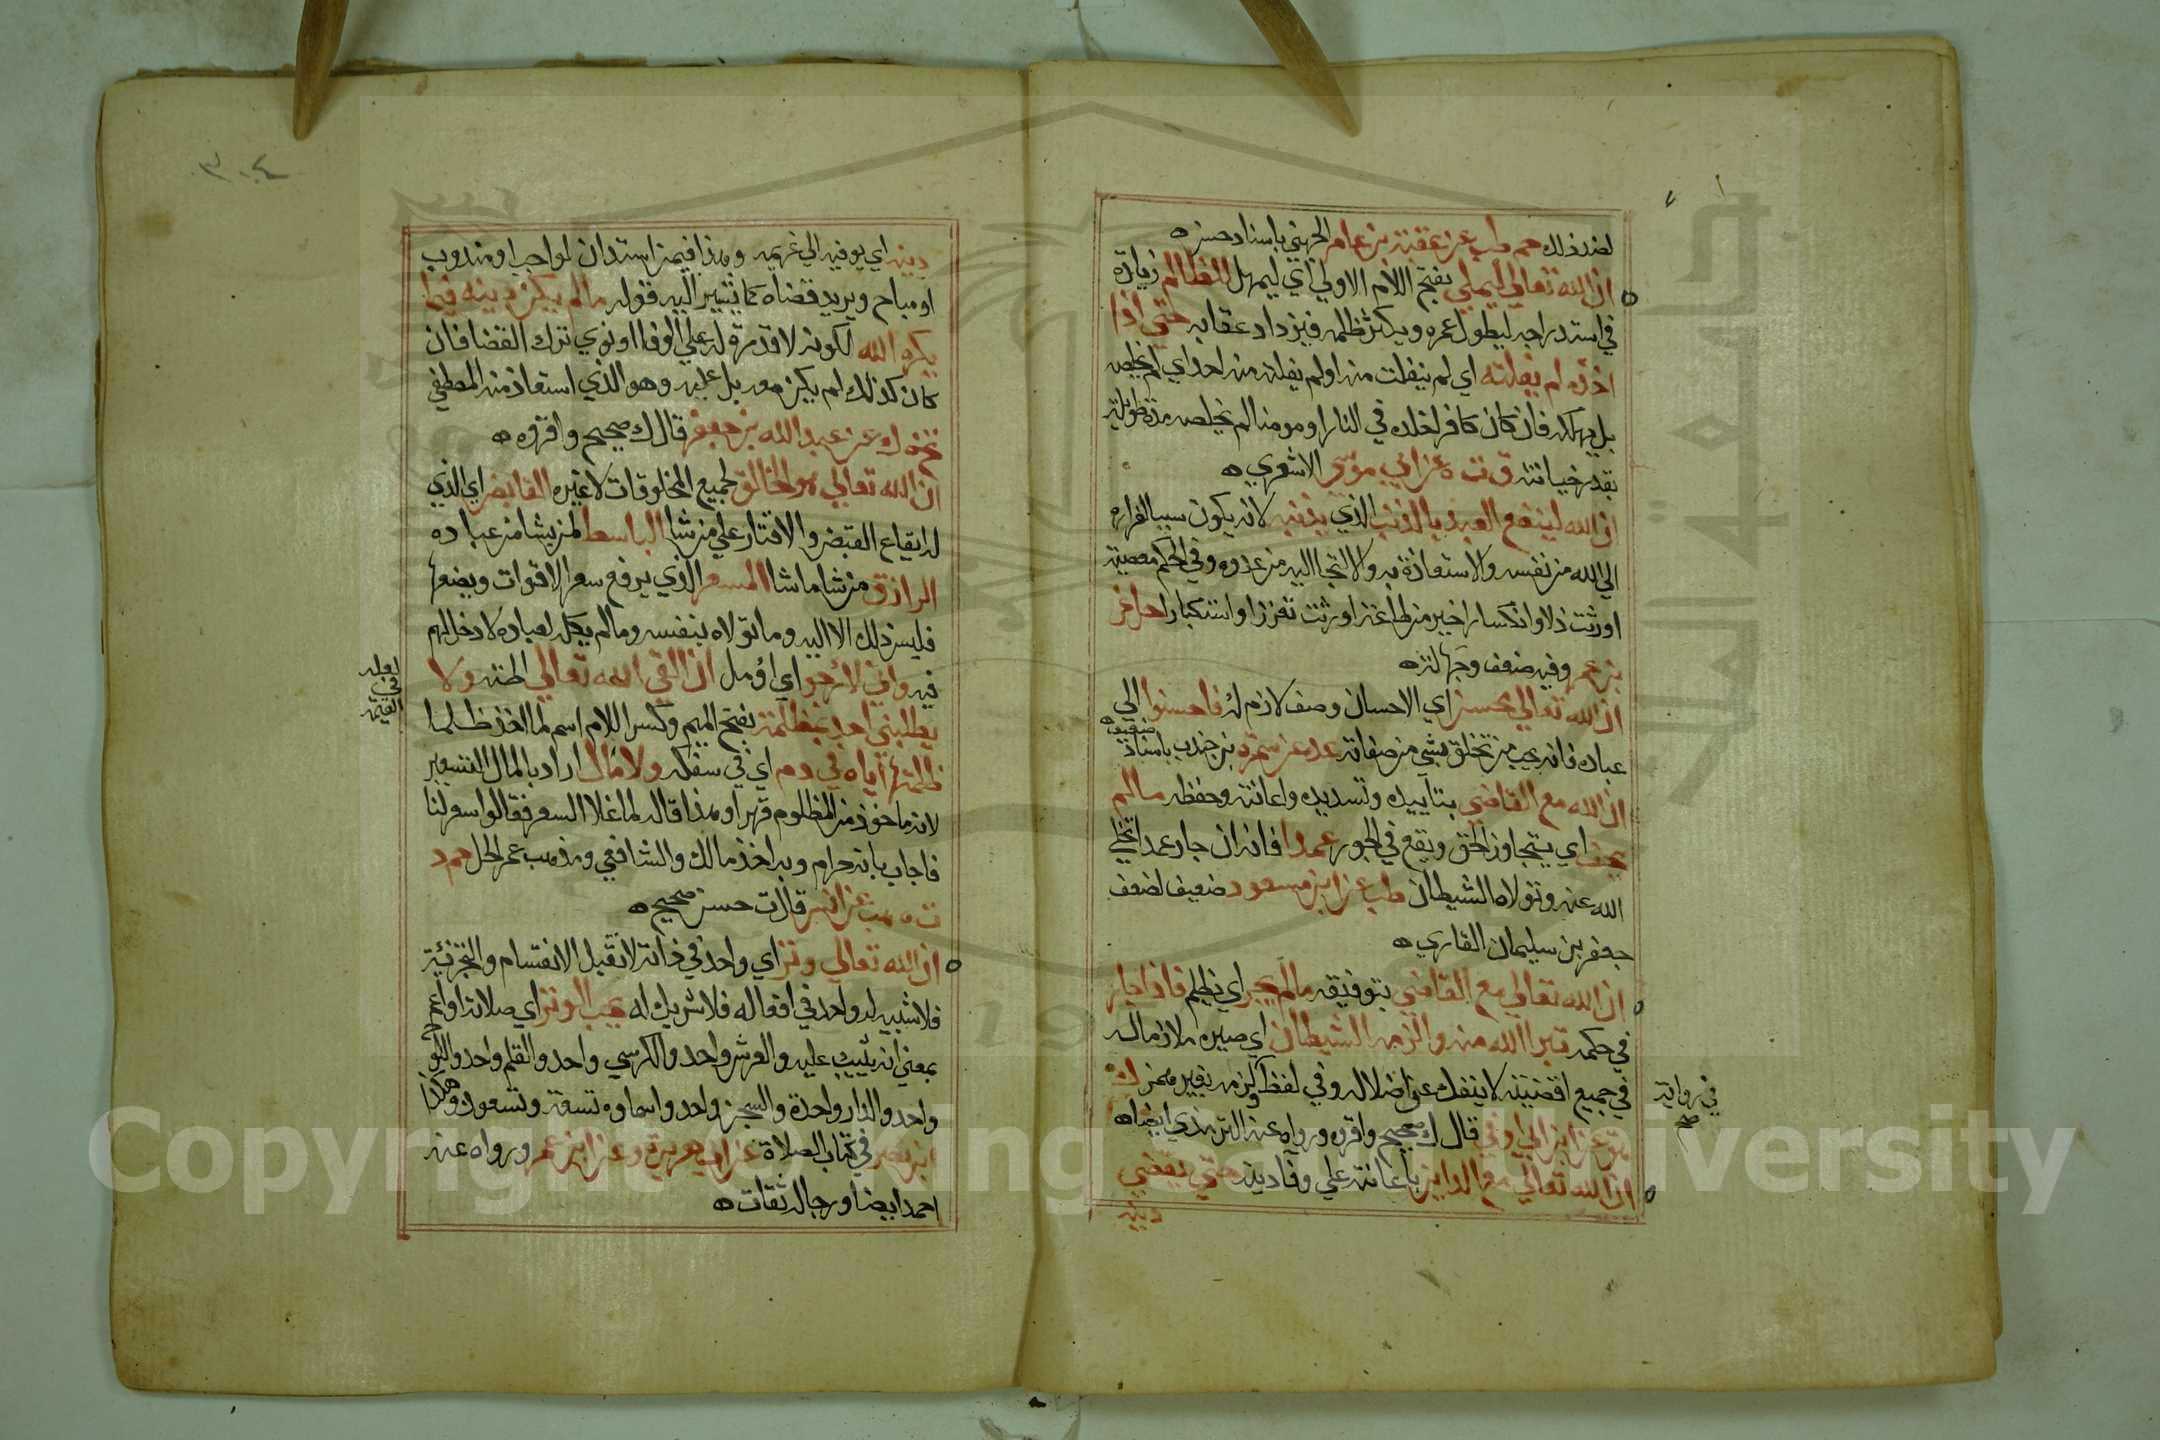 لضد ذلك حم طب عن عقبة بن عامر الجهني باسناد حسن ه
ان الله تعالي ليملي بفتح اللام الاولي اي ليمهل للظالم زيادة
في استدراجه ليطول عمره ويكثر ظلمه فيزداد عقابه حتي اذا
اخذه لم يفلته اي لم ينفلت منه او لم يفلته منه احد اي لم يخلصه
بل يهلكه فان كان كافرا خلده في النار او مومنا لم يخلصه مدة طويلة
بقدر خيانته ق ت ه عن ابي موسي الاشعري ه
ان الله لينفع العبد بالذنب الذي يذنبه لانه يكون سببا لفراره
الي الله من نفسه والاستعاذة به والالتجا اليه من عدوه وفي الحكم معصية
اورثت ذلا وانكسارا خير من طاعة اورثت تعززا واستكبارا حل عن
بن عمر وفيه ضعف وجهالة ه
ان الله تعالي محسن اي الاحسان وصف لازم له فاحسنوا الي
عباده فانه يحب من تخلق بشي من صفاته عد عن سمرة بن جندب باسناد
ضعيف ه
ان الله مع القاضي بتاييده وتسديده واعانته وحفظه ما لم
يحف اي يتجاوز الحق ويقع في الجور عمدا فانه ان جار عمدا تخلي
الله عنه وتولاه الشيطان طب عن ابن مسعود ضعيف لضعف
جعفر بن سليمان القاري ه
ان الله تعالي مع القاضي بتوفيقه ما لم يجر اي يظلم فاذا جار
في حكمه تبرا الله منه والزمه الشيطان اي صيره ملازما له
في جميع اقضيته لا ينفك عن اضلاله وفي لفظ ولزمه بغير همز ك
في رواية
صح
هق عن ابن ابي اوفي قال ك صحيح واقروه ورواه عنه الترمذي ايضا ه
ان الله تعالي مع الداين باعانته علي وفا دينه حتي يقضي
دينه
٣٠٤
دينه اي يوفيه الي غريمه وهذا فيمن استدان لواجب او مندوب
او مباح ويريد قضاه كما يشير اليه قوله ما لم يكن دينه فيما
يكره الله لكونه لا قدرة له علي الوفا او نوي ترك القضا فان
كان كذلك لم يكن معه بل عليه وهو الذي استعاذ منه المصطفي
تخ ه ك عن عبد الله بن جعفر قال ك صحيح واقروه ه
ان الله تعالي هو الخالق لجميع المخلوقات لا غيره القابض اي الذي
له ايقاع القبض والاقتار علي من شا الباسط لمن يشا من عباده
الرازق من شا ما شا المسعر الذي يرفع سعر الاقوات ويضعها
فليس ذلك الا اليه وما تولاه بنفسه وما لم يكله لعباده لا دخل لهم
فيه واني لارجو اي اؤمل ان القي الله تعالي اظنه ولا
لعله
في
القيمة
يطلبني احد بمظلمة بفتح الميم وكسر اللام اسم لما اخذ ظلما
ظلمتها اياه في دم اي في سفكه ولا مال اراد بالمال التسعير
لانه ماخوذ من المظلوم قهرا وهذا قاله لما غلا السعر فقالوا سعر لنا
فاجاب بانه حرام وبه اخذ مالك والشافعي ومذهب عمر الحل حم د
ت ه هب عن انس قال ت حسن صحيح ه
ان الله تعالي وتر اي واحد في ذاته لا تقبل الانقسام والتجزئية
فلا شبيه له واحد في افعاله فلا شريك له يحب الوتر اي صلاته او اعم
بمعني انه يثيب عليه والعرش واحد والكرسي واحد والقلم واحد واللوح
واحد والدار واحدة والسجن واحد واسماوه تسعة وتسعون وهكذا
ابن نصر في كتاب الصلاة عن ابي هريرة وعن ابن عمر ورواه عنه
احمد ايضا ورجاله ثقات ه
Copyright © King Saud University